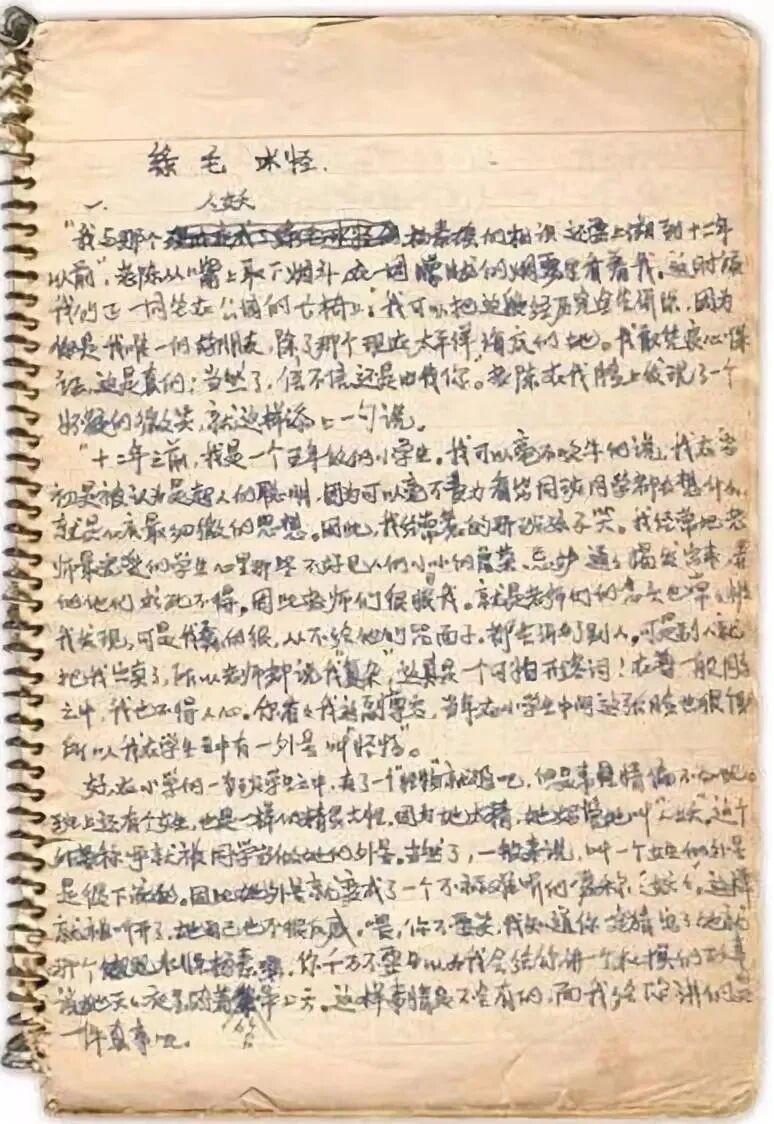 绿毛水怪
一、 人妖
“我与那个杨素瑶的相识还要上溯到十二年
以前”，老陈从嘴上取下烟斗，在一团朦胧的烟雾里看着我。这时候
我们正一同坐在公园的长椅上：我可以把这段经历完全告诉你，因为
你是我唯一的好朋友，除了那个现在太平洋海底的她。我敢凭良心保
证，这是真的；当然了，信不信还是由你”。老陈在我脸上发现了一个
怀疑的微笑，就这样添上一句说。
“十二年之前，我是一个五年级的小学生。我可以毫不吹牛的说，我在当
初是被认为是超人的聪明，因为可以毫不费力看出同班同学都在想什么，
就是心底最细微的思想。因此，我经常惹的班孩子笑。我经常把老
师最宠爱的学生心里那些不好见人的小小的虚荣、忌妒通通揭发出来，
他们求死不得。因此老师们很恨我。就是老师们的念头也常常被
我发现，可是我蠢的很，从不给他们留面子，都告诉了别人。可是别人就
把我出卖了，所以老师都说我“复杂”，这真是一个可怕的形容词！在一般同学
之中，我也不得人心。你看看我这副尊容，当年在小学生中间这张脸也很
所以我在学生中有一外号叫“怪物”。
好，在小学的一班学生之中，有了一个“怪物”就够吧，但是事情偏不如此。
班上还有个女生，也是一样的精灵古怪，因为她太精，她妈管她叫“人妖”。这个
称呼就被同学当做她的外号。当然了，一般来说，叫一个女生的外号
是很下流的。因此她外号就变成了一个不难听的昵称“妖妖”。这样
就被叫开了，她自己也不很反感。喂，你不要笑，我知道你一定猜出了她就
那个水怪杨素瑶，你千万不要以为我会给你讲一个杜撰的故事
说她天天夜里骑着笤帚上天。这样事情是不会有的，而我给你讲的是
一件真事呢。